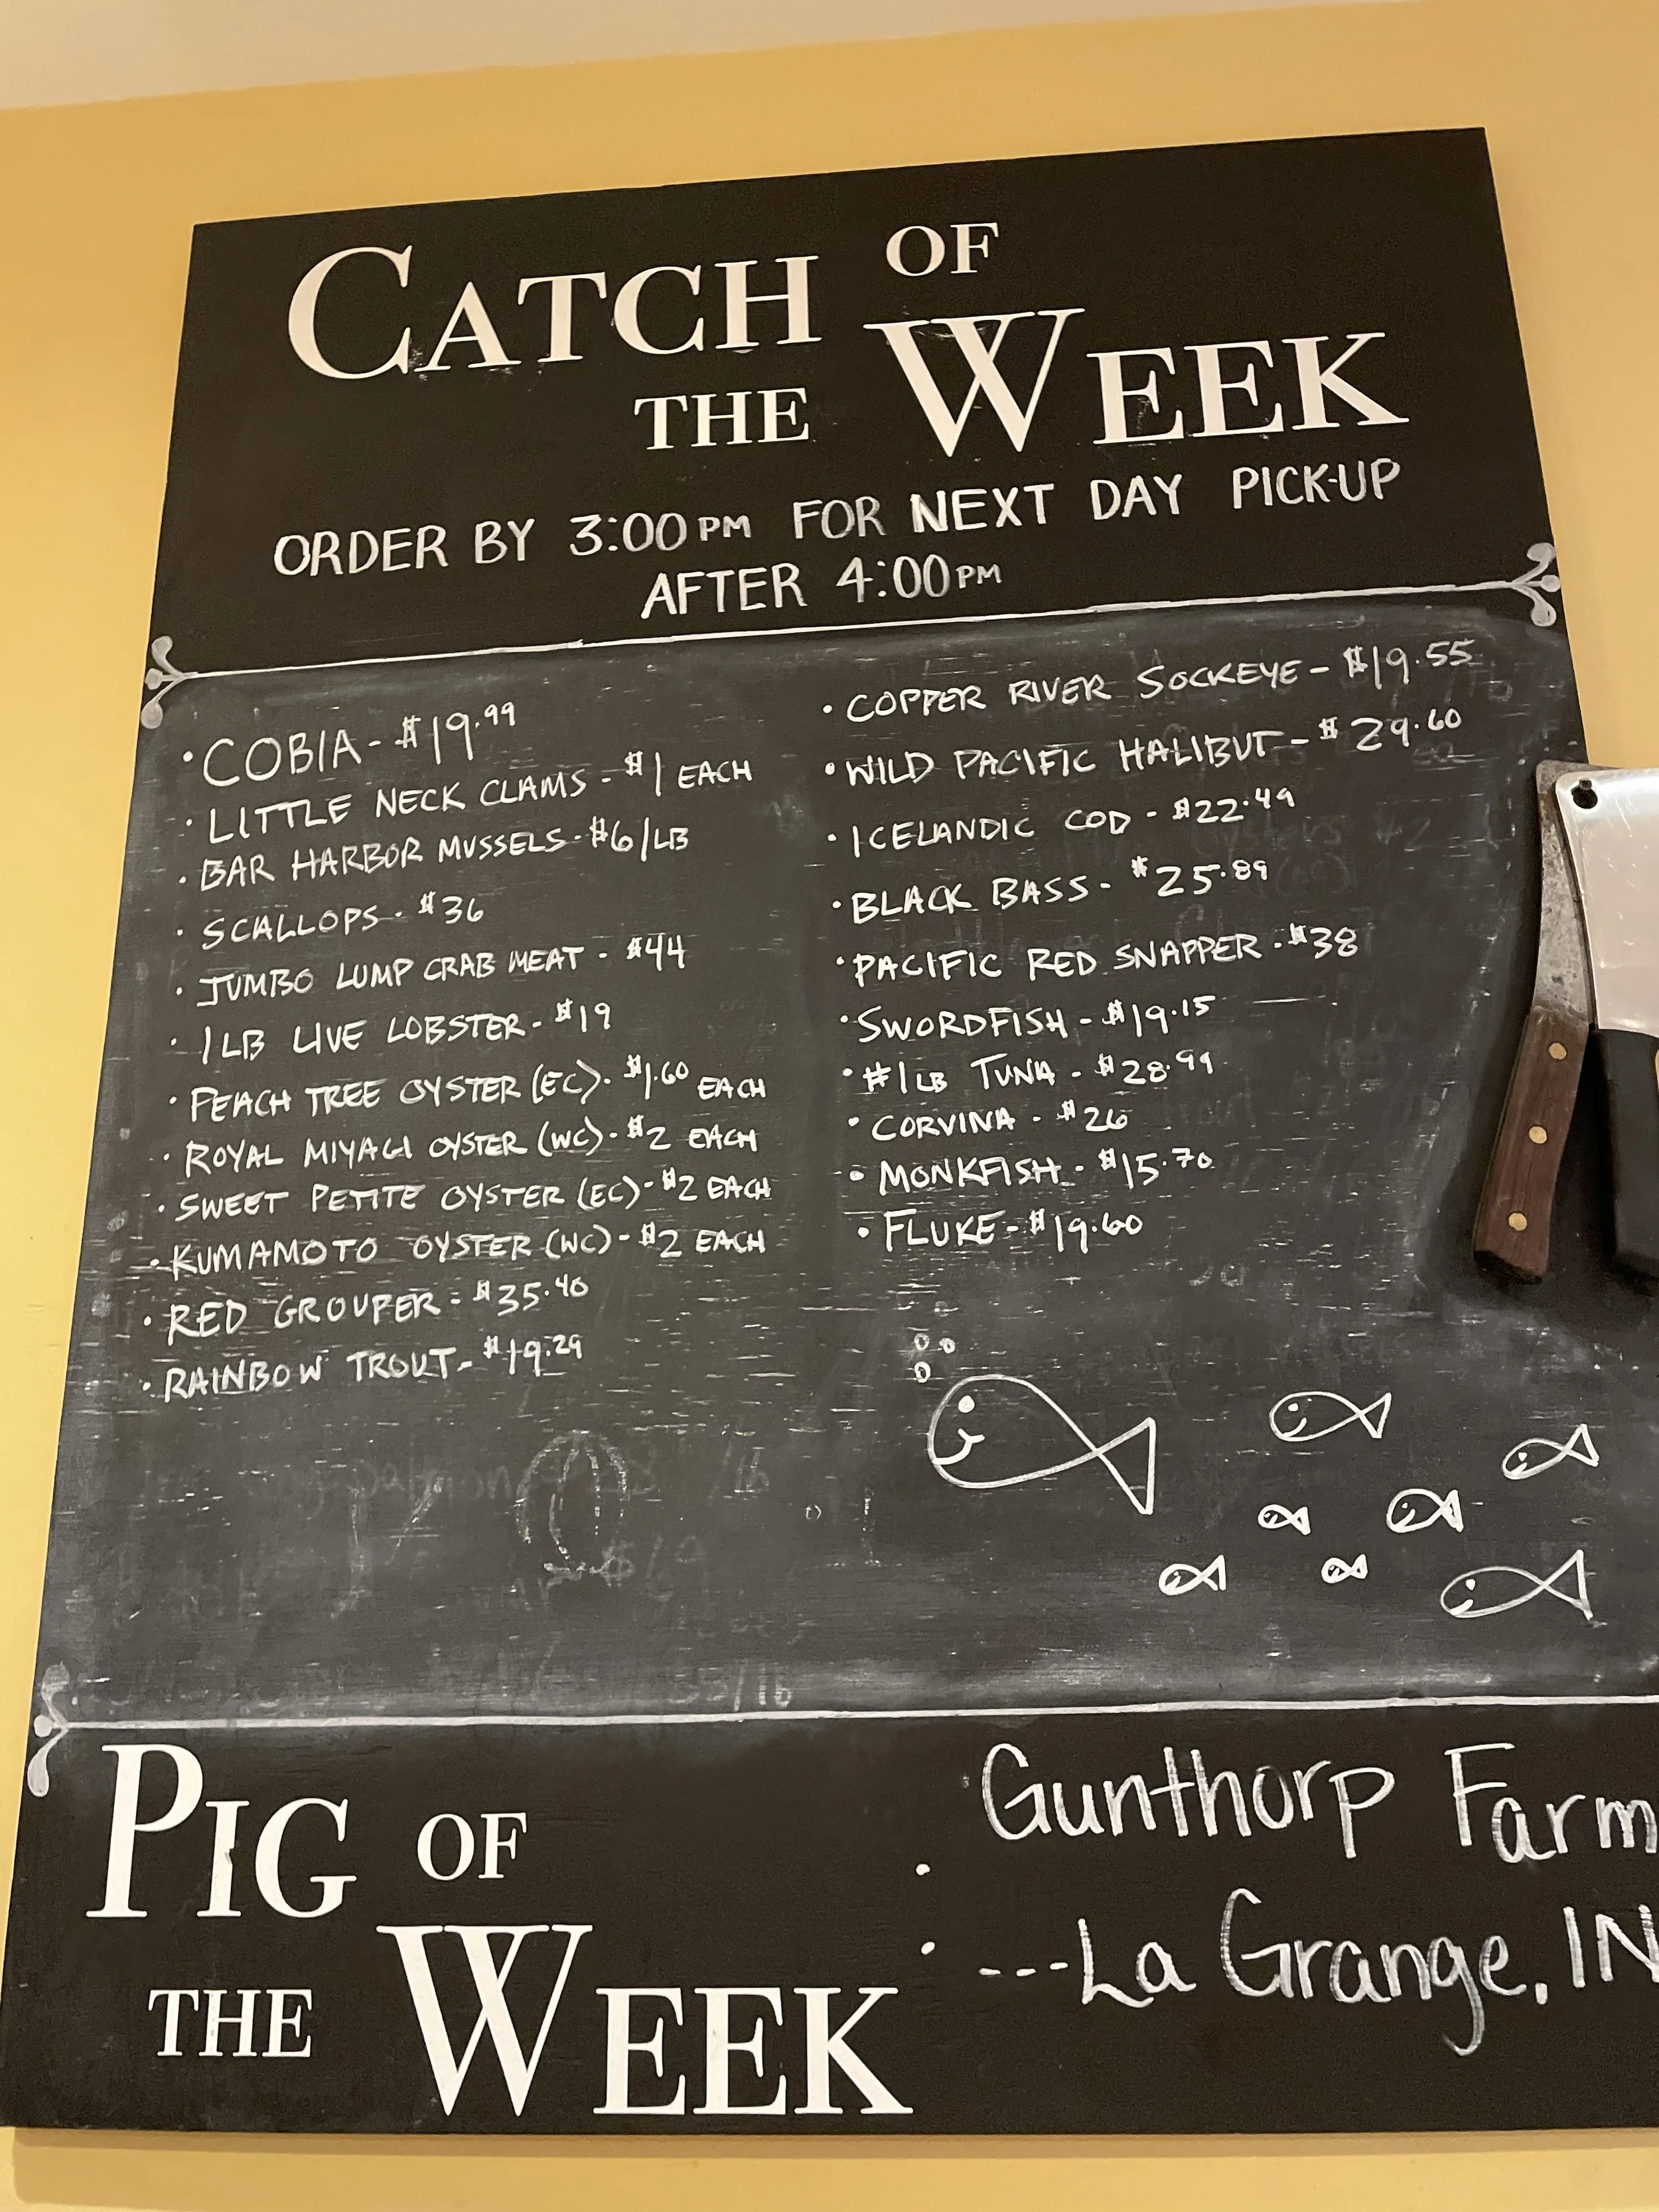 CATCH OF
THE WEEK
ORDER BY 3:00PM FOR NEXT DAY PICK-UP
AFTER 4:00PM
• COBIA - $19.99
• LITTLE NECK CLAMS - $1 EACH
• BAR HARBOR MUSSELS - $6/LB
• SCALLOPS - $36
• JUMBO LUMP CRAB MEAT - $44
• 1LB LIVE LOBSTER - $19
• PEACH TREE OYSTER (EC) - $1.60 EACH
• ROYAL MIYAGI OYSTER (WC) - $2 EACH
• SWEET PETITE OYSTER (EC) - $2 EACH
• KUMAMOTO OYSTER (WC) - $2 EACH
• RED GROUPER - $35.40
• RAINBOW TROUT - $19.29
• COPPER RIVER SOCKEYE - $19.55
• WILD PACIFIC HALIBUT - $29.60
• ICELANDIC COD - $22.49
• BLACK BASS - $25.89
• PACIFIC RED SNAPPER - $38
• SWORDFISH - $19.15
• #1LB TUNA - $28.99
• CORVINA - $26
• MONKFISH - $15.70
• FLUKE - $19.60
PIG OF
THE WEEK
: Gunthorp Farm
---La Grange, IN